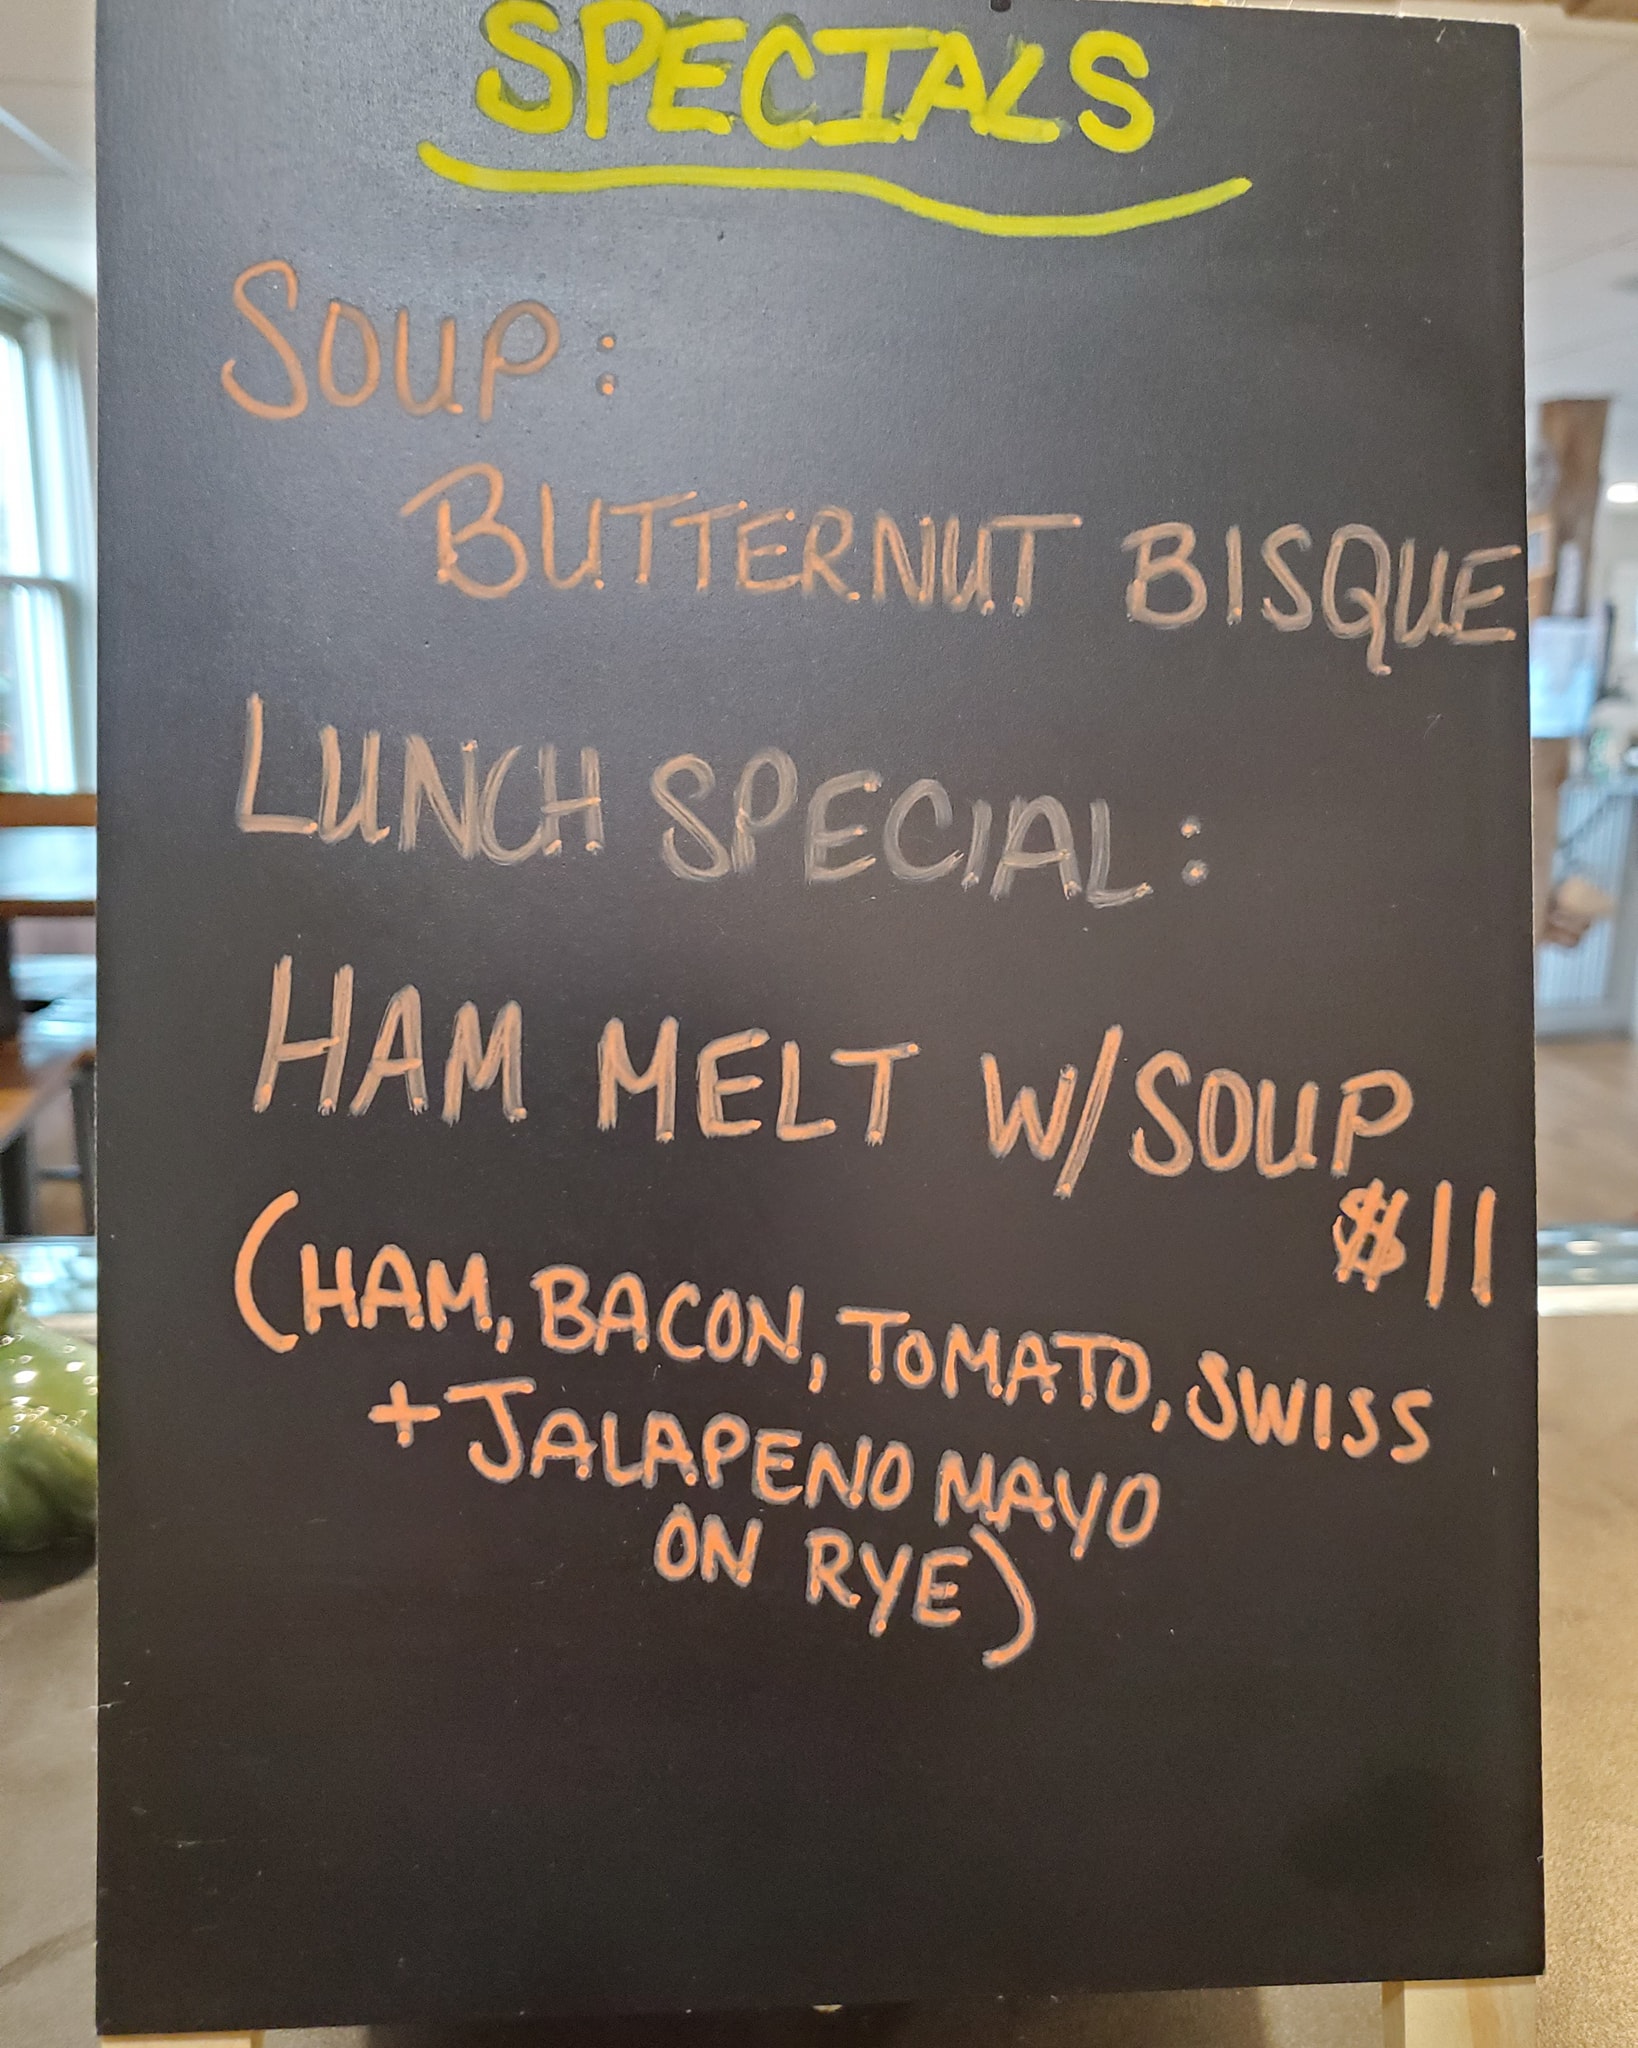 SPECIALS
SOUP:
BUTTERNUT BISQUE
LUNCH SPECIAL:
HAM MELT W/SOUP
$11
(HAM, BACON, TOMATO, SWISS
+ JALAPENO MAYO
ON RYE)